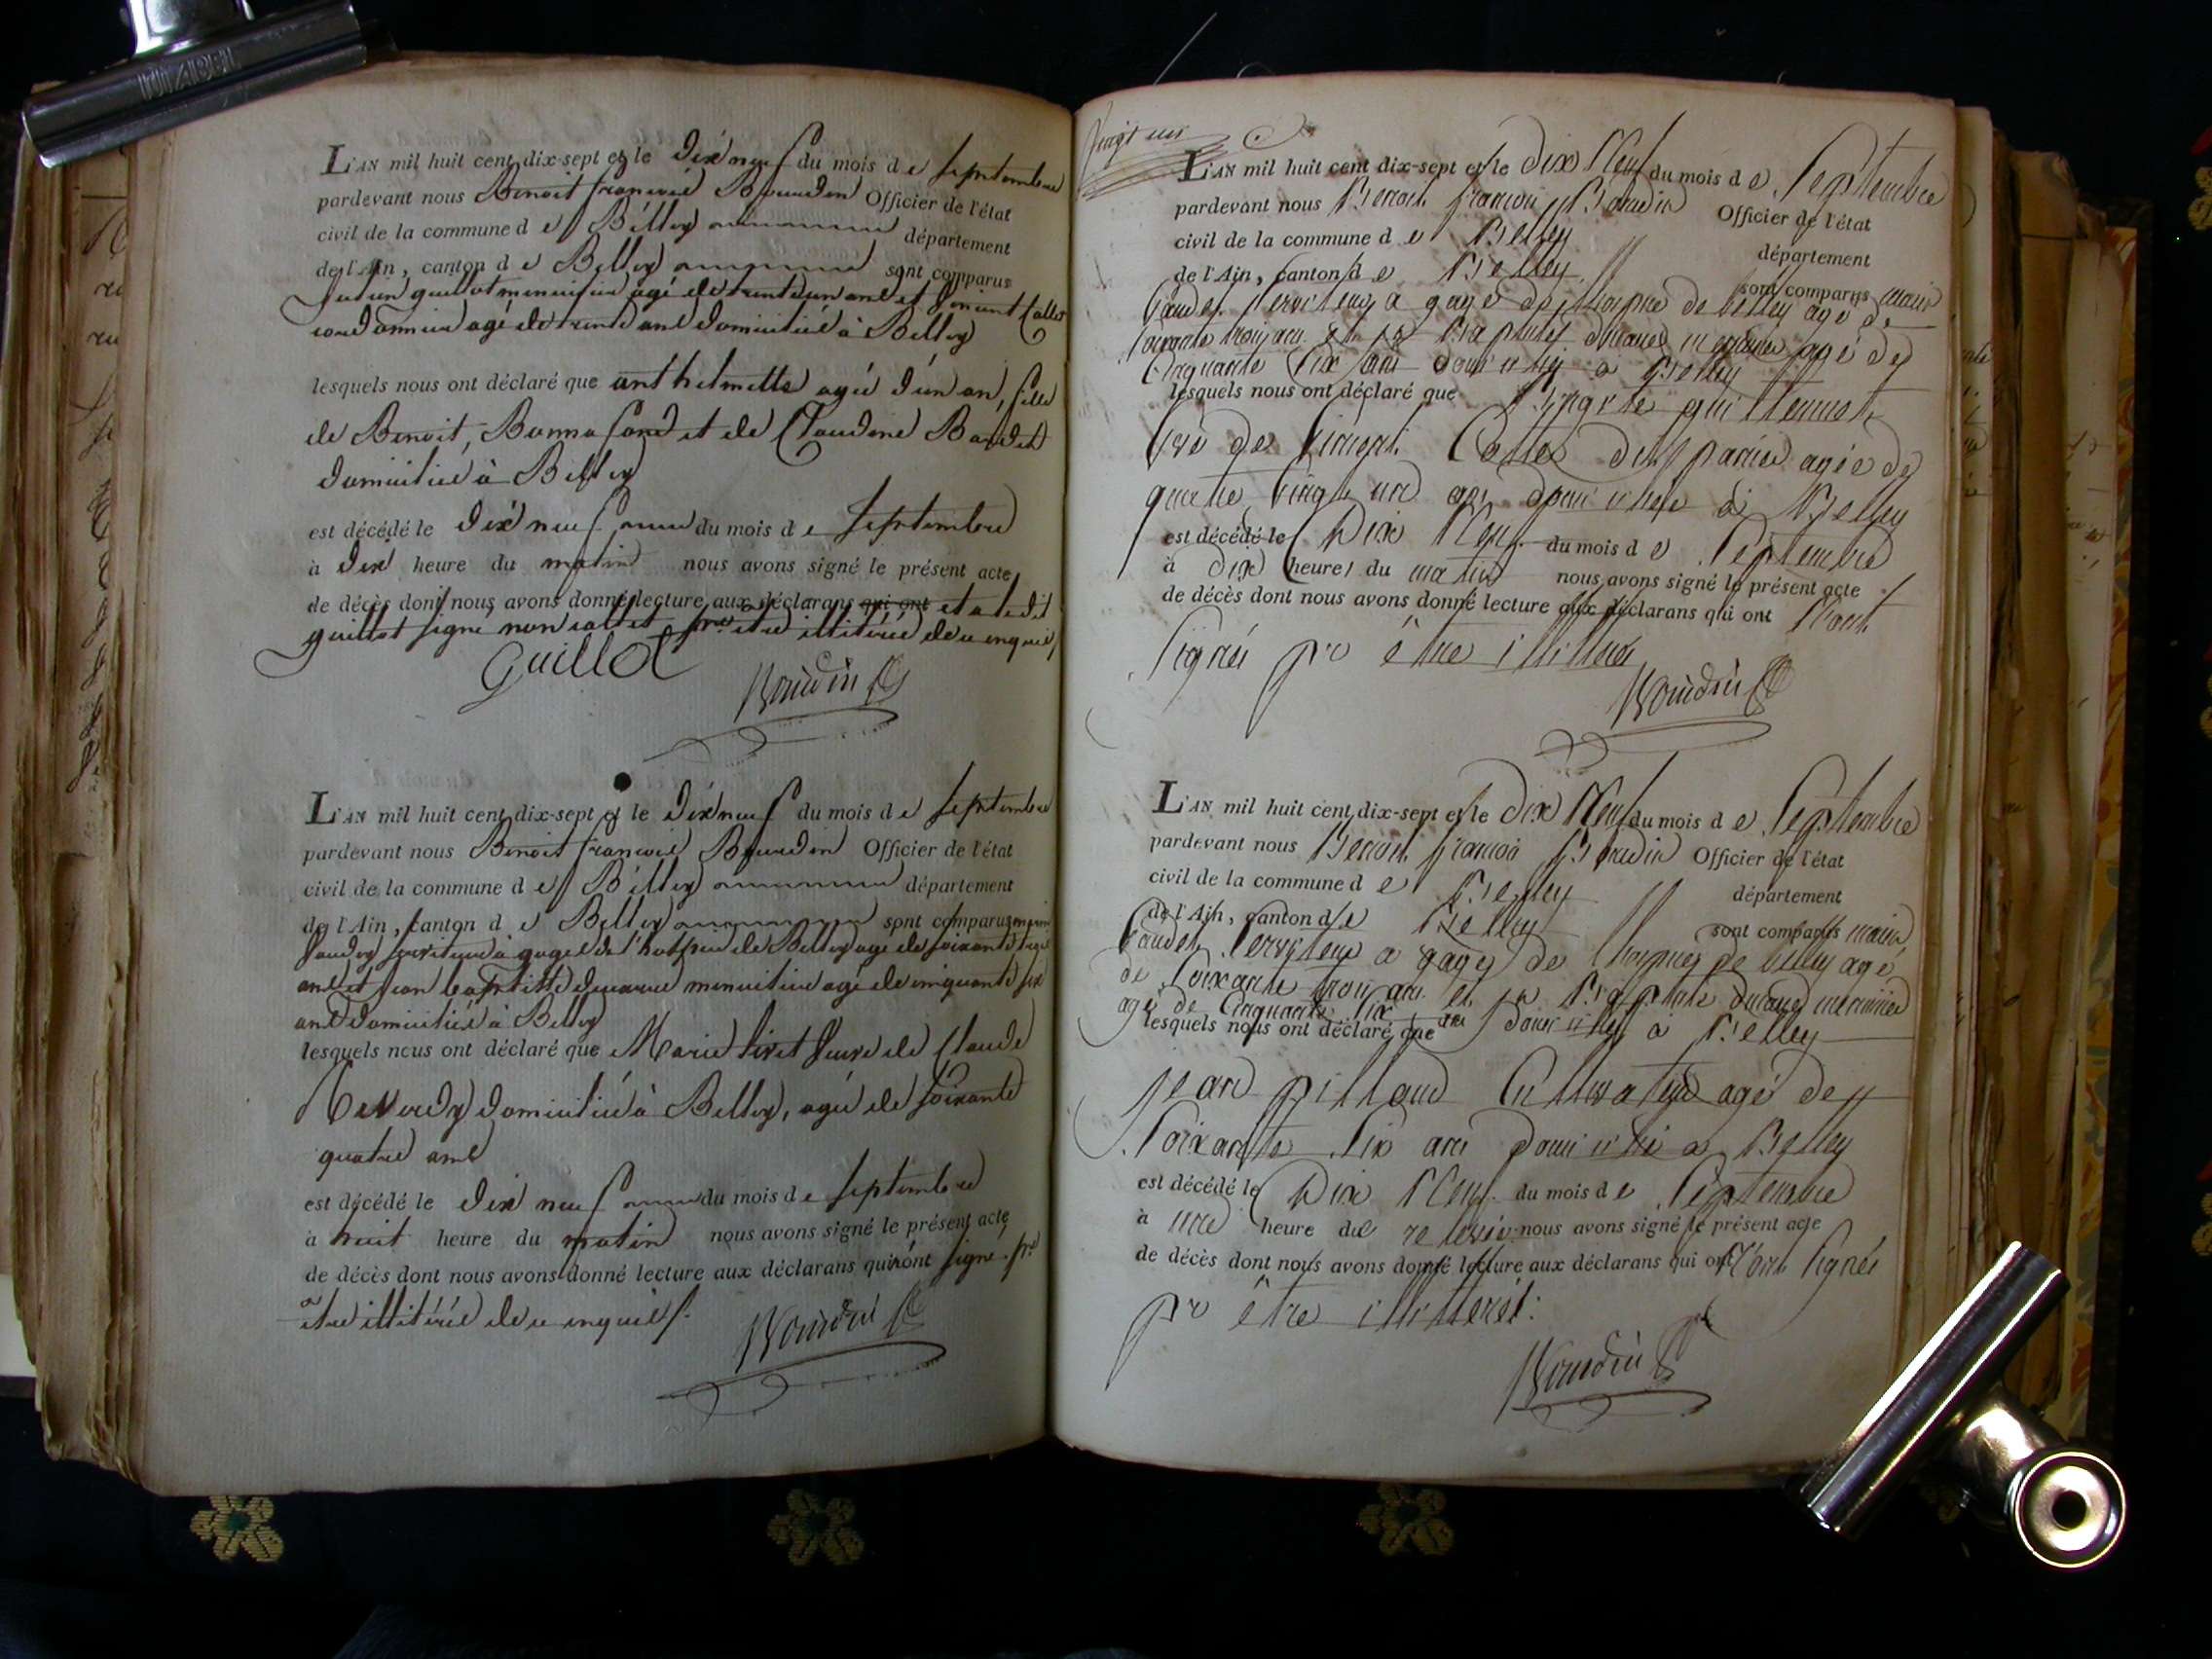 L'AN mil huit cent dix-sept et le dix neuf du mois de septembre
pardevant nous Benoit francois Bourdin Officier de l'état
civil de la commune de Belley département
de l'Ain, canton de Belley sont comparus
guillot menuisier agé de trente un ans et
cordonnier agé de trente ans domicilié à Belley
lesquels nous ont déclaré que anthelmette agée d'un an, fille
de Benoit, Bonnafond et de Claudine Baudet
domicilié à Belley
est décédé le dix neuf du mois de septembre
à dix heure du matin nous avons signé le présent acte
de décès dont nous avons donné lecture aux déclarans qui ont et a ledit
guillot signé non pr etre illitéré de ce enquis
Guillot
Bourdin
L'AN mil huit cent dix-sept et le dix neuf du mois de septembre
pardevant nous Benoit francois Bourdin Officier de l'état
civil de la commune de Belley département
de l'Ain, canton de Belley sont comparus
serviteur à gage de l'hospice de Belley agé de soixante trois
ans et jean baptiste menuisier agé de cinquante six
ans domicilié à Belley
lesquels nous ont déclaré que Marie veuve de Claude
domicilié à Belley, agée de soixante
quatre ans
est décédé le dix neuf du mois de septembre
à huit heure du matin nous avons signé le présent acte
de décès dont nous avons donné lecture aux déclarans qui n'ont signé pr
etre illitéré de ce enquis
Bourdin
vingt un
L'AN mil huit cent dix-sept et le dix Neuf du mois de Septembre
pardevant nous Benoit francois Bourdin Officier de l'état
civil de la commune de Belley département
de l'Ain, canton de Belley sont comparus
serviteur a gage de l'hospice de belley agé de
soixante trois ans et jn Baptiste menuisier agé de
Cinquante Six ans domicilié a Belley
lesquels nous ont déclaré que
agée de
quatre vingt un ans domicilié a Belley
est décédé le Dix Neuf du mois de Septembre
à dix heure du matin nous avons signé le présent acte
de décès dont nous avons donné lecture aux déclarans qui ont N'ont
Signés pr être illitterés
Bourdin
L'AN mil huit cent dix-sept et le dix Neuf du mois de Septembre
pardevant nous Benoit francois Bourdin Officier de l'état
civil de la commune de Belley département
de l'Ain, canton de Belley sont comparus
serviteur a gages de l'hospice de belley agé
de soixante trois ans et jn Baptiste menuisier
agé de Cinquante Six ans domicilié a Belley
lesquels nous ont déclaré que
jean pillaud Cultivateur agé de
Soixante Six ans domicilié a Belley
est décédé le Dix Neuf du mois de Septembre
à une heure de relevée nous avons signé le présent acte
de décès dont nous avons donné lecture aux déclarans qui ont N'ont Signés
pr être illitterés.
Bourdin